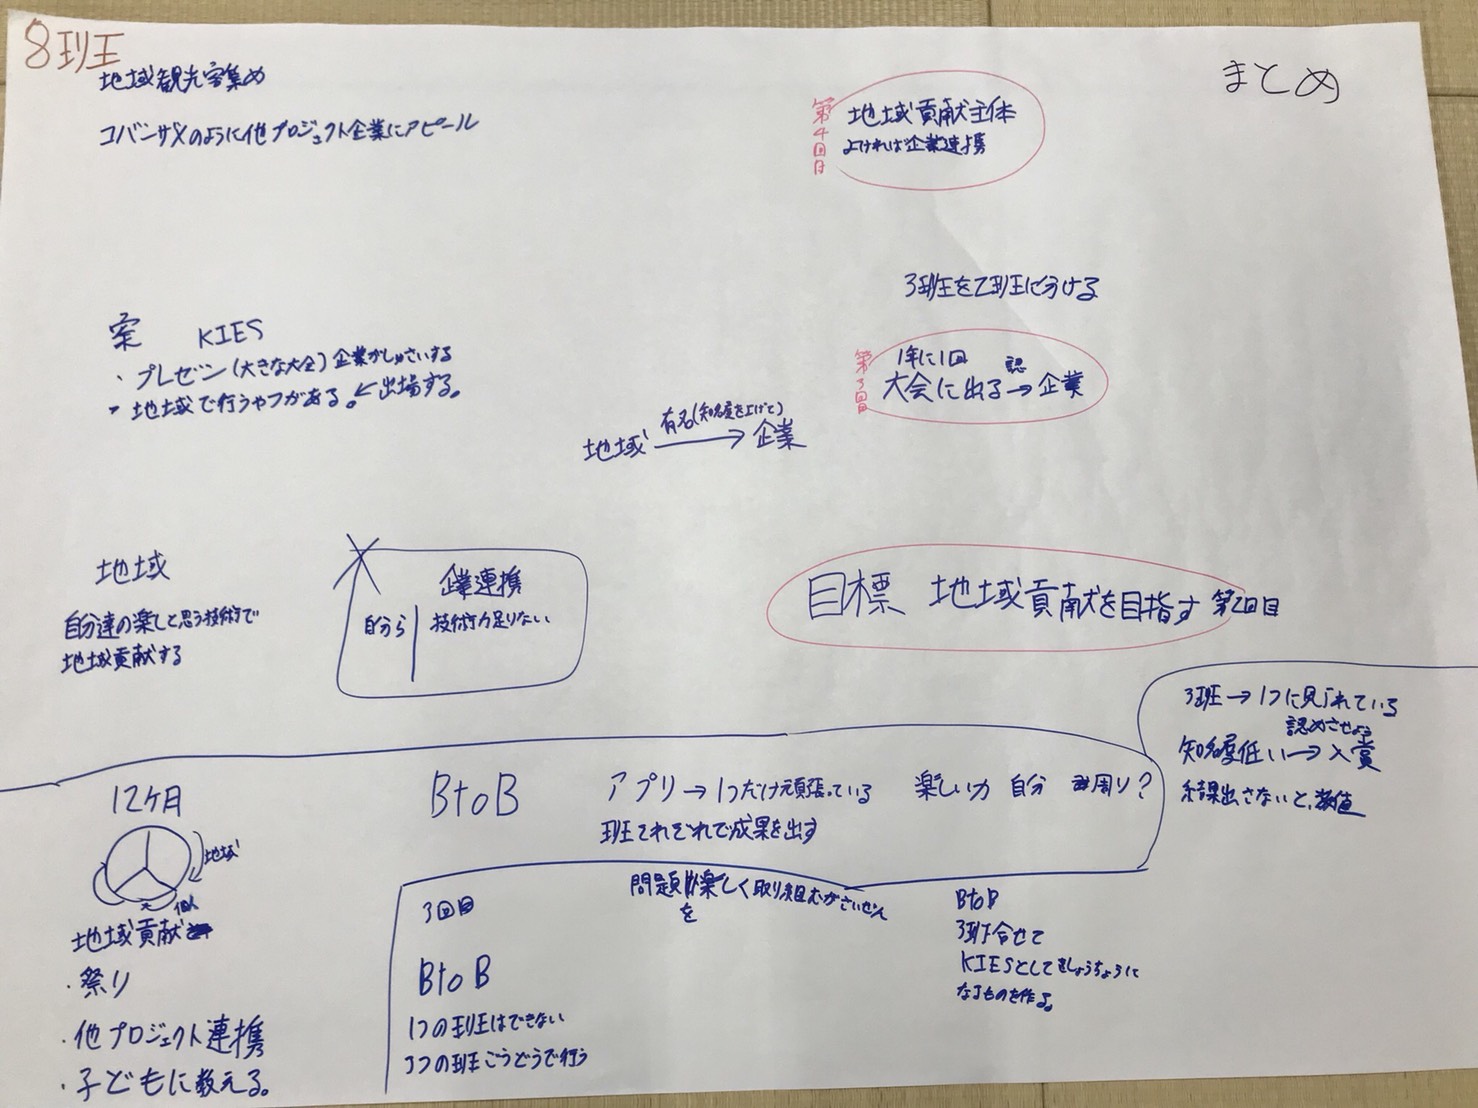 8班
まとめ
地域観光客集め
コバンザメのように他プロジェクト企業にアピール
第4回目
地域貢献主体
よければ企業連携
3班を2班に分ける
案 KIES
・プレゼン(大きな大会)企業がしゅさいする
・地域で行うやつがある。←出場する。
第3回目
1年に1回 認
大会に出る→企業
地域 有名(知名度を上げて)→ 企業
地域
自分達の楽しと思う技術で
地域貢献する
企業連携
自分ら 技術力足りない
目標 地域貢献を目指す 第2回目
3班→1つに見られている
認めさせよう
知名度低い→入賞
結果出さないと、
12ヶ月
地域
地域貢献
・祭り
・他プロジェクト連携
・子どもに教える。
BtoB
アプリ→1つだけ頑張っている
班それぞれで成果を出す
楽しい力 自分 周り?
3回目
問題を楽しく取り組む
BtoB
1つの班ではできない
3つの班ごうどうで行う
BtoB
3班合せて
KIESとして
なるものを作る。